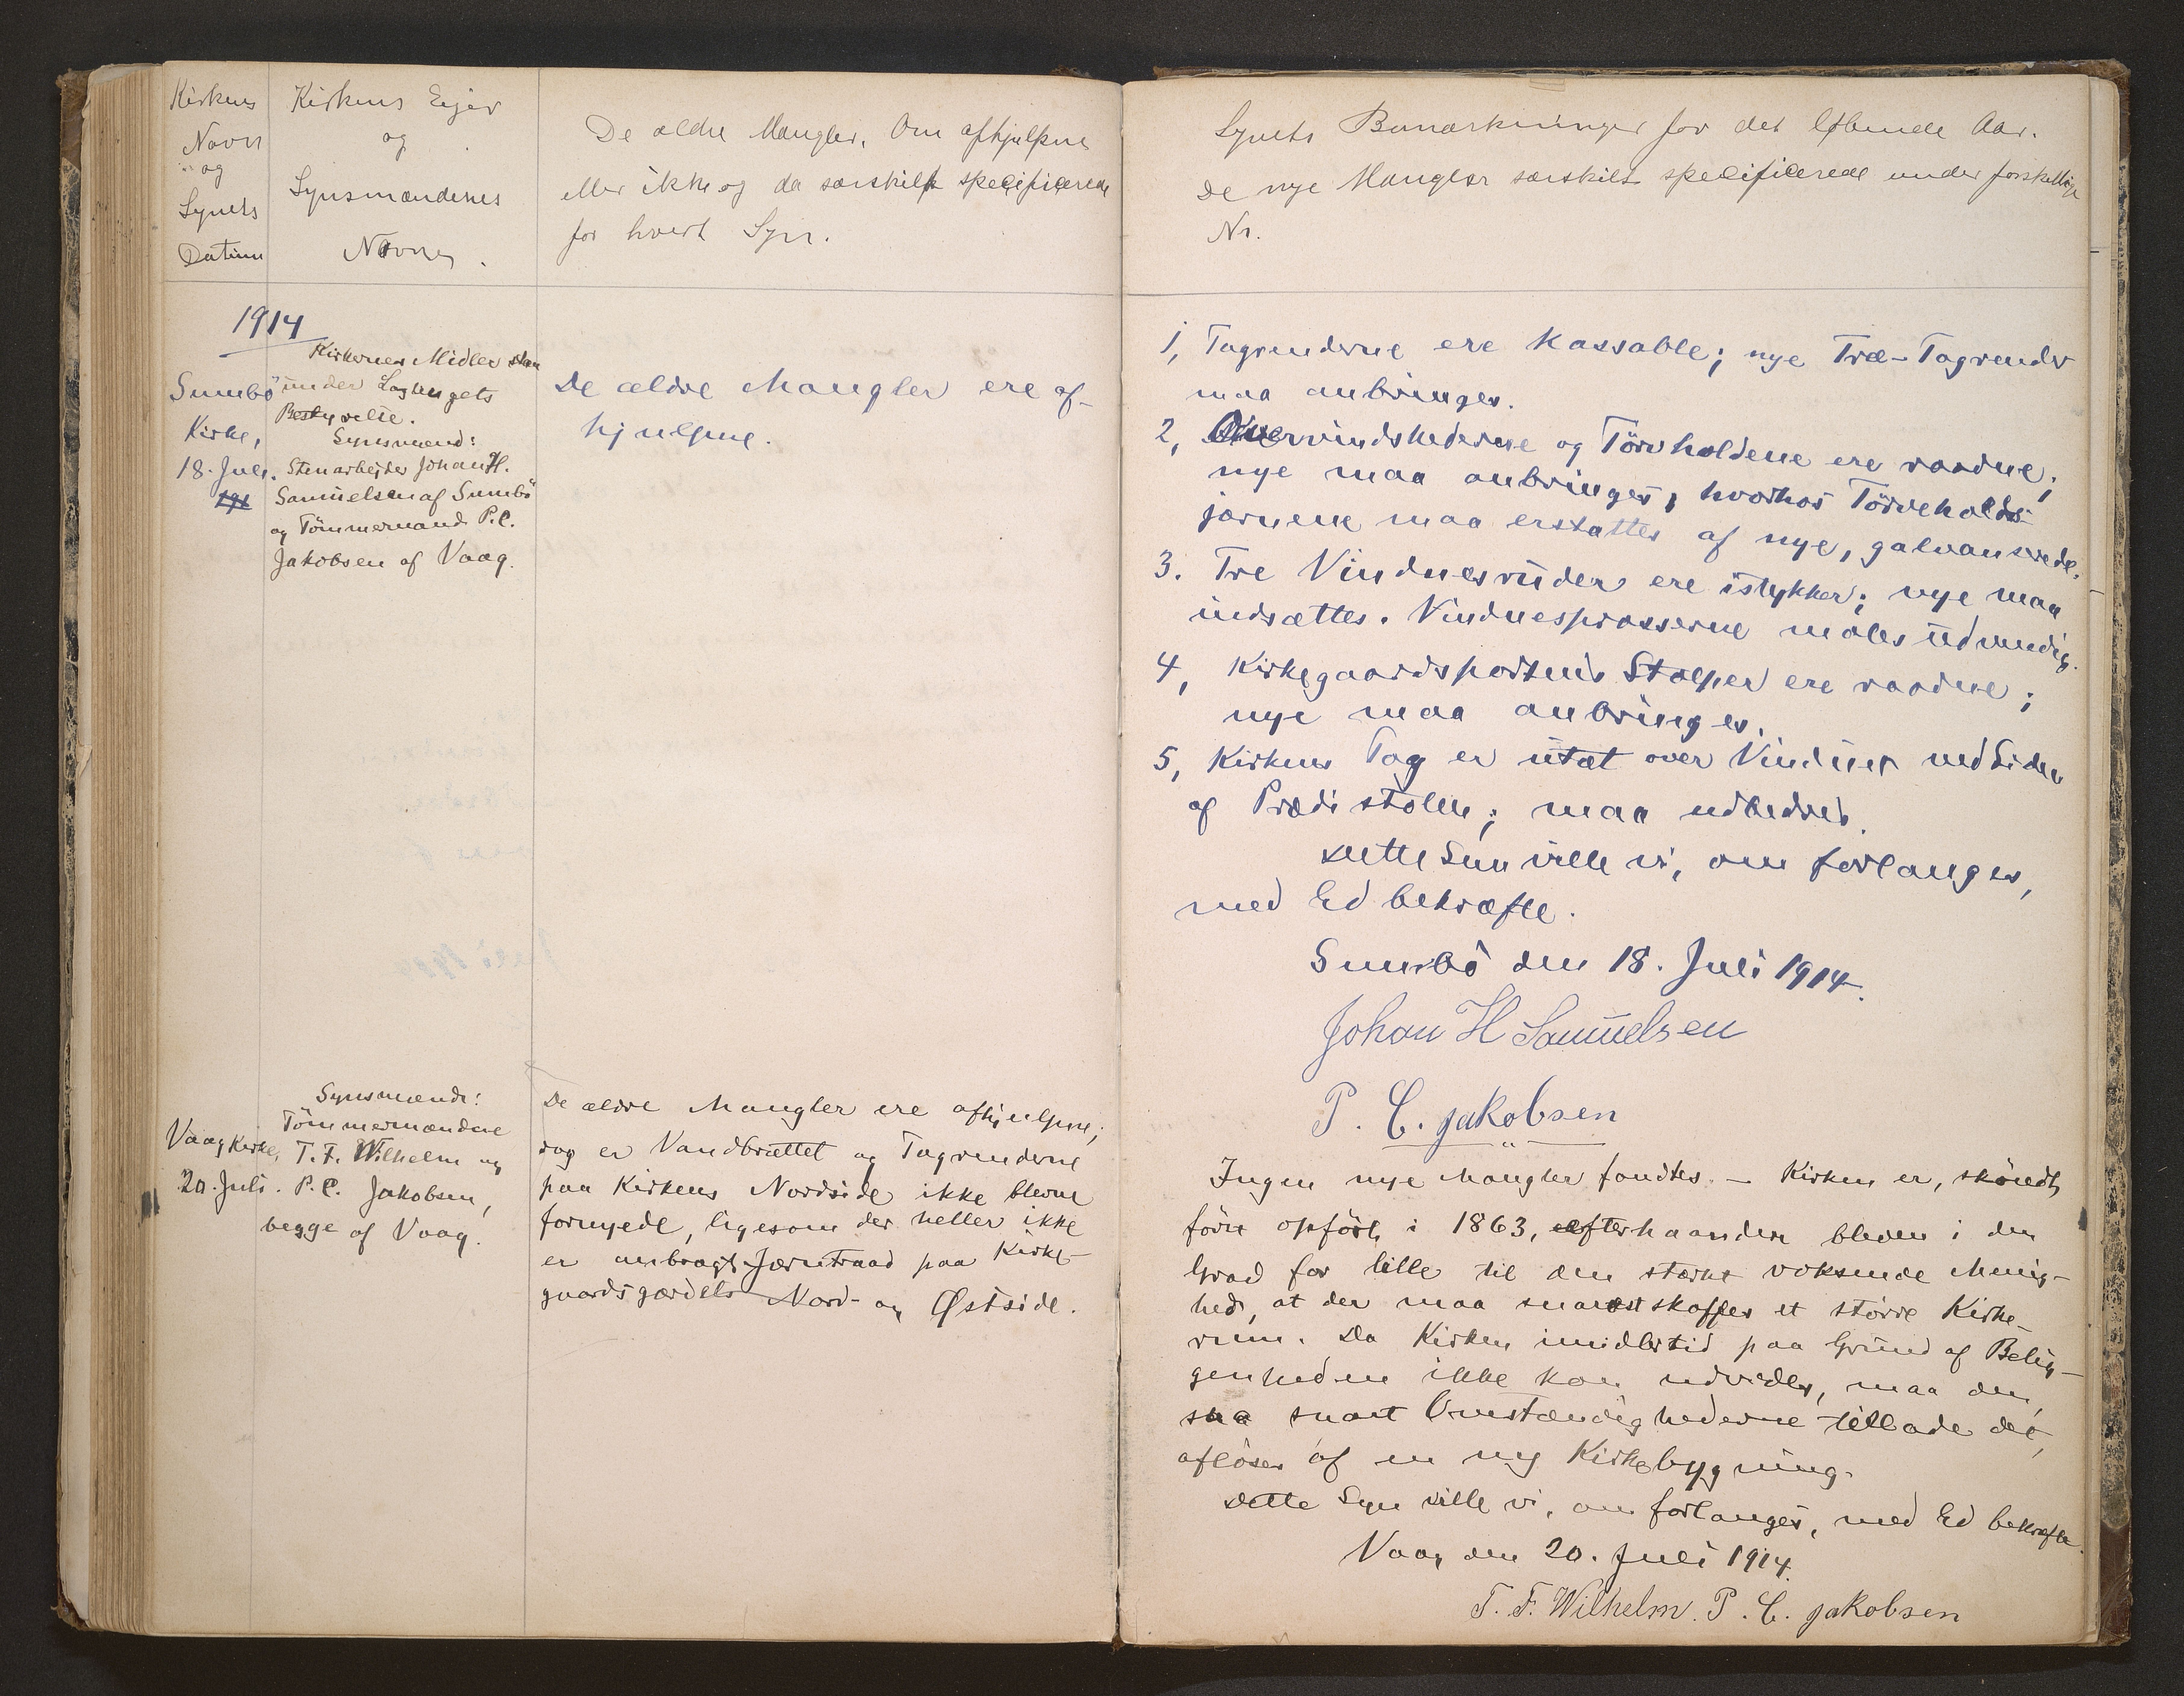 Kirkens
Navn
og
Synets
Datum
Kirkens Ejer
og
Synsmændenes
Navne.
De ældre Mangler, Om afhjulpne
eller ikke og da særskilt specificerede
for hvert Syn.
1914
Sumbö
Kirke,
18. Juli.
191
Kirkernes Midler staa
under Lagtingets
Bestyrelse.
Synsmænd:
Stenarbejder Johan H.
Samuelsen af Sumbö
og Tömmermand P.C.
Jakobsen af Vaag.
De ældre Mangler ere af-
hjulpne.
Vaag Kirke,
20. Juli.
Synsmænd:
Tömmermændene
T. F. Wilhelm og
P. C. Jakobsen,
begge af Vaag.
De ældre Mangler ere afhjulpne;
dog er Vandbrættet og Tagrenderne
paa Kirkens Nordside ikke blevne
fornyede, ligesom der heller ikke
er anbragt Jærntraad paa Kirke-
gaardsgærdets Nord- og Østside.
Synets Bemærkninger for det løbende Aar.
De nye Mangler særskilt specificerede under forskellige
Nr.
1, Tagrenderne ere kassable; nye Træ-Tagrender
maa anbringes.
2, Overvindskederne og Törvholdene ere raadne;
nye maa anbringes, hvorhos Törveholds-
jærnene maa erstattes af nye, galvaniserede.
3. Tre Vinduesruder ere istykker; nye maa
indsættes. Vinduesprosserne males udvendig.
4, Kirkegaardsportens Stolper ere raadne;
nye maa anbringes.
5, Kirkens Tag er utæt over Vinduet ved Siden
af Prædistolen; maa udbedres.
Dette Syn ville vi, om forlanges,
med Ed bekræfte.
Sumbö den 18. Juli 1914.
Johan H Samuelsen
P. C. Jakobsen
Ingen nye Mangler fandtes. – Kirken er, sköndt
först opfört i 1863, efterhaanden bleven i den
Grad for lille til den stærkt voksende Menig-
hed, at der maa snarest skaffes et större Kirke-
rum. Da Kirken imidlertid paa Grund af Belig-
genheden ikke kan udvides, maa den,
saa snart Omstændighederne tillade det,
aflöses af en ny Kirkebygning.
Dette Syn ville vi, om forlanges, med Ed bekræfte.
Vaag den 20. Juli 1914.
T. F. Wilhelm. P. C. Jakobsen